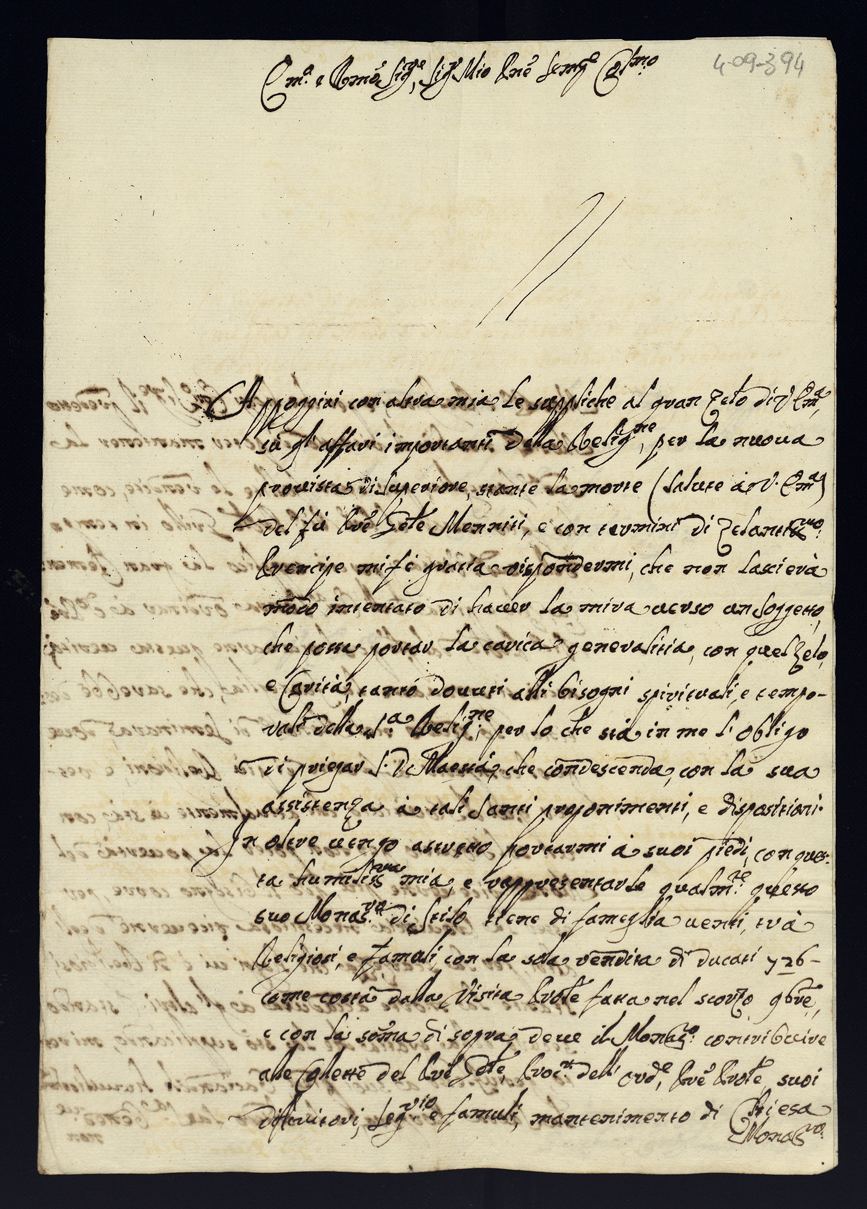 4-09-394
Em.ª e Rmo Sig.re, Sig.r Mio Pne Semp.e Col.mo
Appoggiai con altra mia le suppliche al gran Zelo di V. Em.ª,
sù gl'affari importanti della Relig.ne, per la nuova
provista di Superiore, stante la morte (salute à V. Em.ª)
del fù Pre Gnle Menniti, e con termini di Zelantiss.mo
Prencipe mi fè gratia rispondermi, che non lascierà
modo intentato di haver la mira verso un Soggetto,
che possa portar la carica generalitia, con quel Zelo,
e Carità, tanto dovuti alli bisogni spirituali, e tempo-
rali della S.ª Relig.ne; per lo che stà in me l'obligo
di priegar S. D. Maestà, che condescenda, con la sua
assistenza à tali Santi proponimenti, e dispositioni.
In oltre vengo astretto portarmi à suoi piedi, con ques-
ta humiliss.ma mia, e rappresentarle qualm.te questo
suo Monas.ro di Stilo tiene di fameglia venti, trà
Religiosi, e famuli, con la sola vendita di ducati 726-
come costa dalla Visita Prole fatta nel scorzo 9bre,
e con la soma di sopra deve il Monas.ro contribuire
alle Collette del Pre Gnle, Proc.re dell' ord.e, Pre Prole, suoi
difinitori, Seg.rio e famuli, mantenimento di Chiesa
Monas.ro